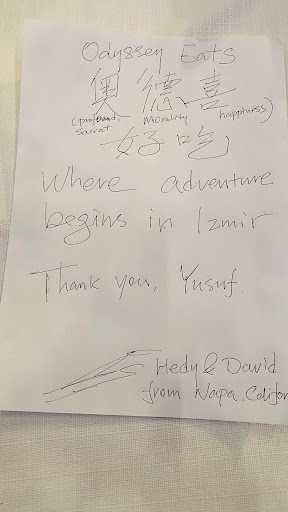 Odyssey Eats
奧 德 喜
(profound, sacred morality happiness)
好吃
Where adventure
begins in Izmir
Thank you, Yusuf.
Hedy & David
from Napa, Califor